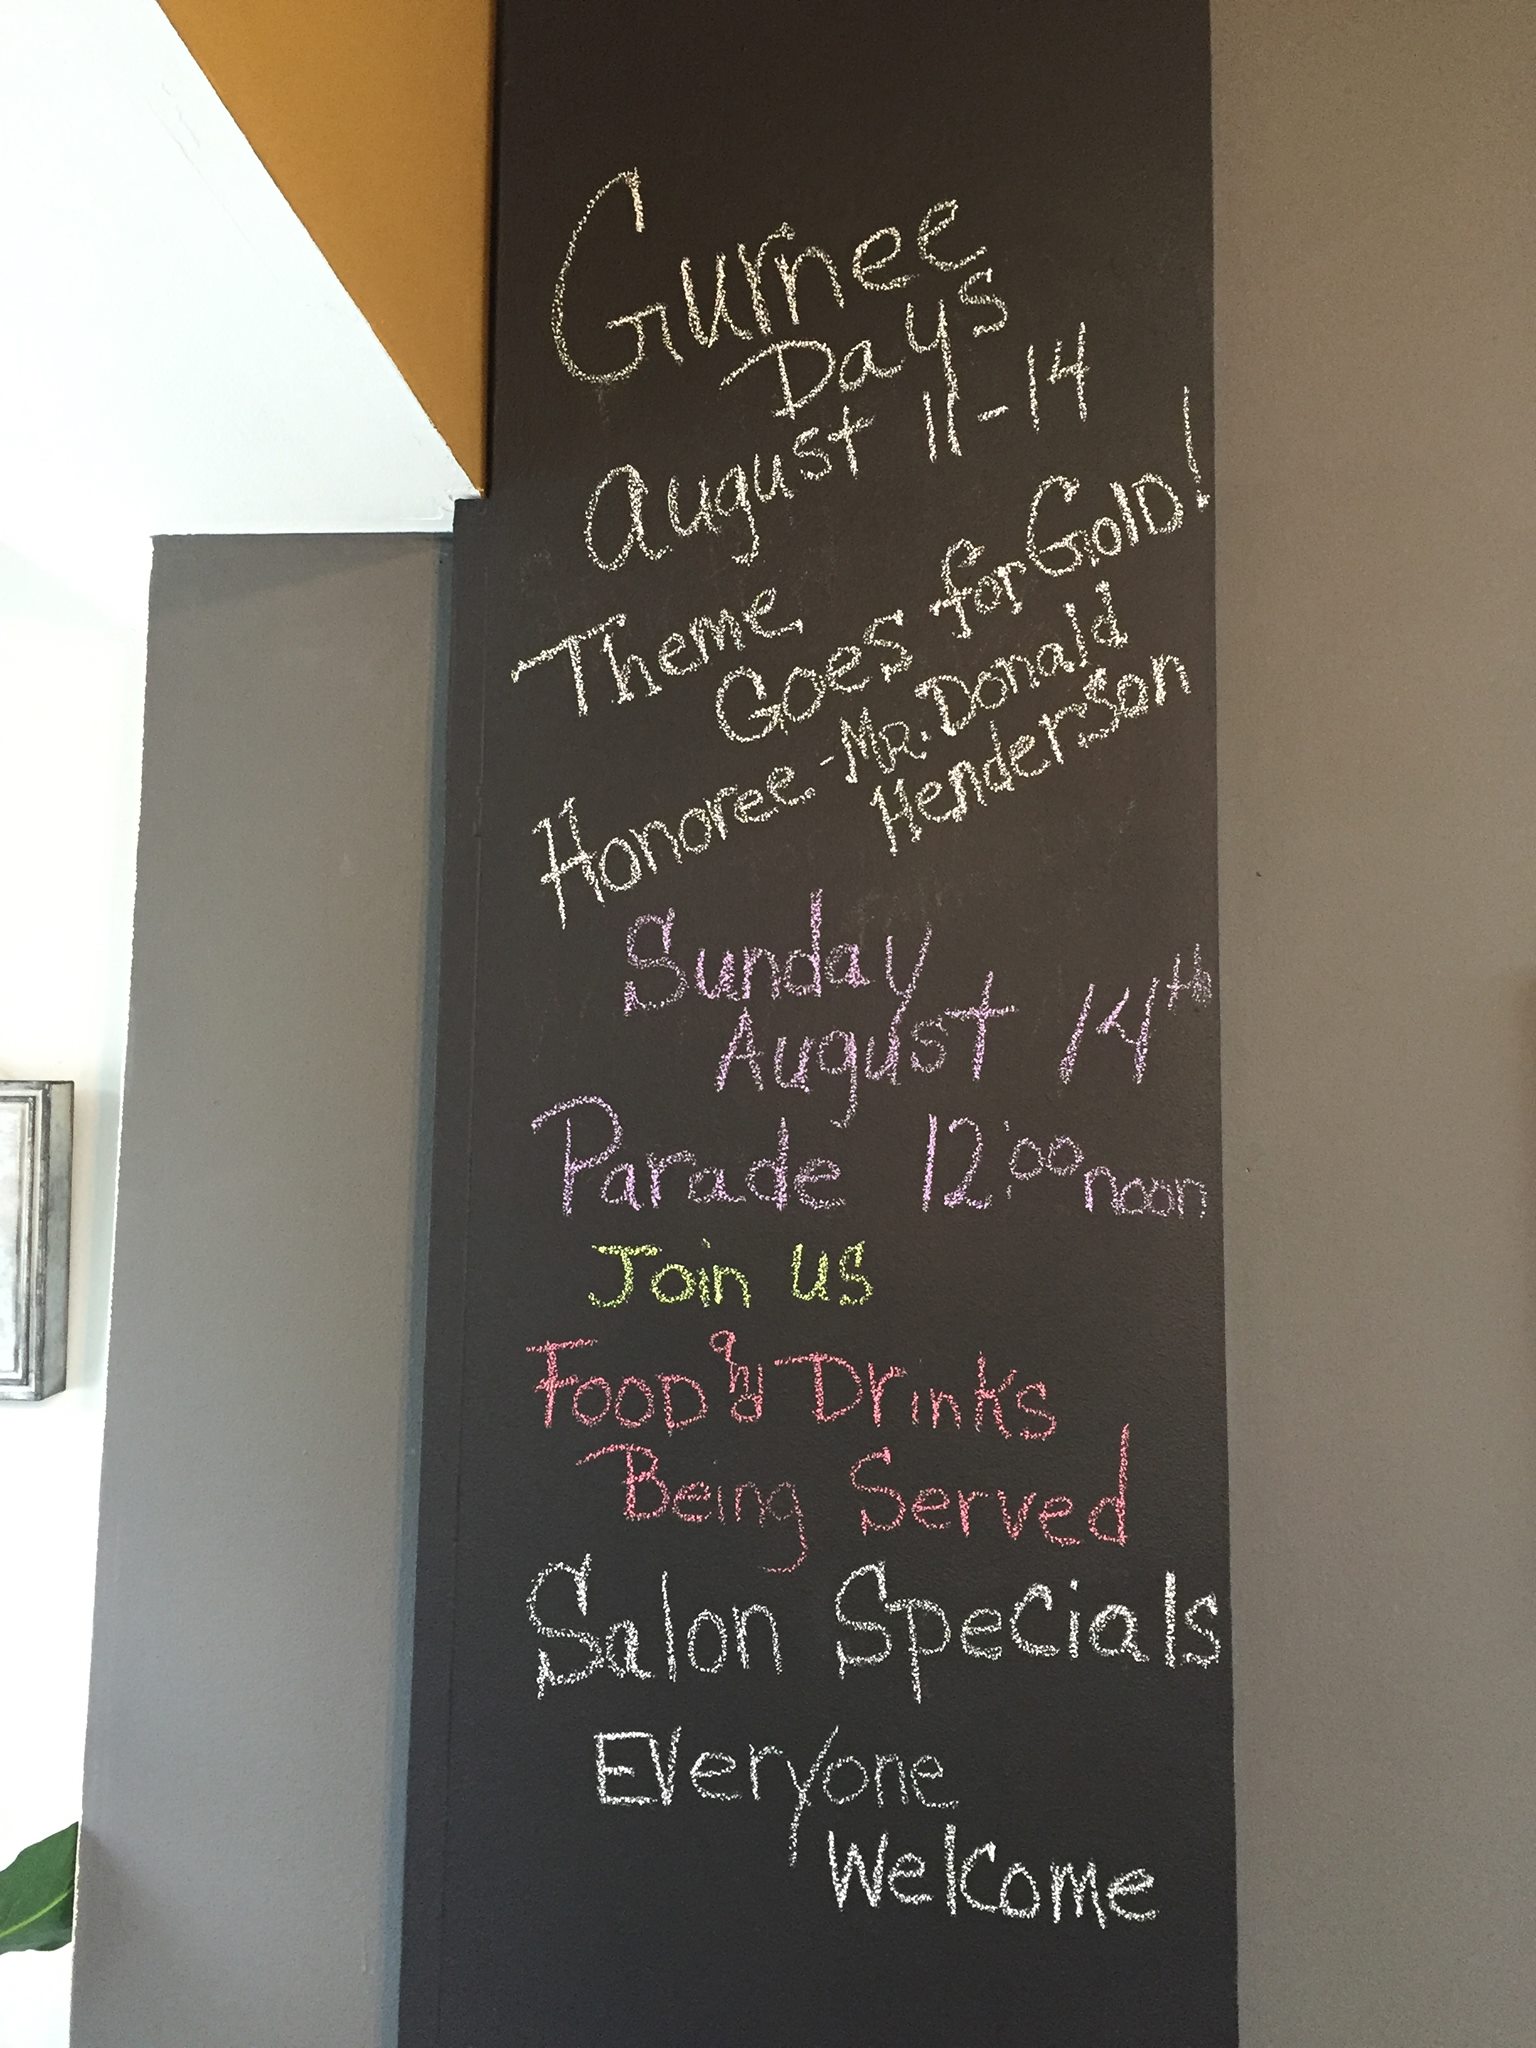 Gurnee
Days
August 11-14
Theme
Goes for Gold!
Honoree - Mr. Donald
Henderson
Sunday
August 14th
Parade 12:00 noon
Join us
Food and Drinks
Being Served
Salon Specials
Everyone
Welcome